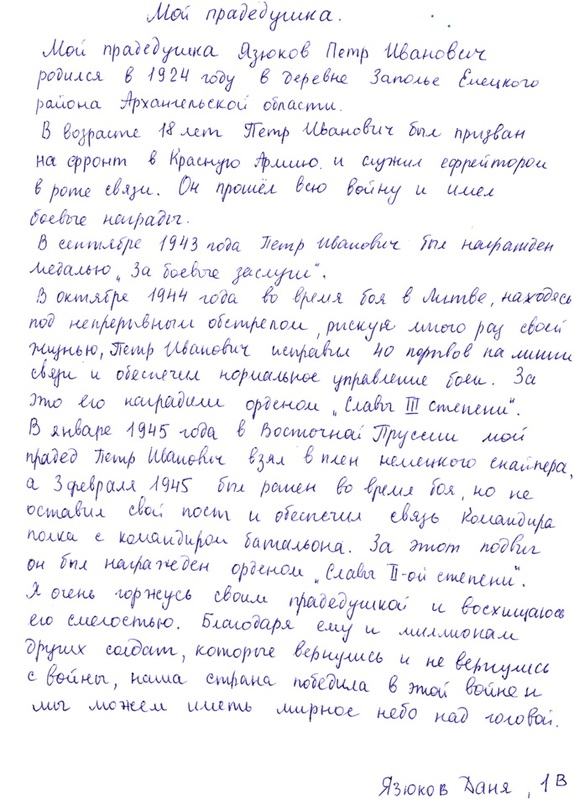 Мой прадедушка.
Мой прадедушка Язюков Петр Иванович
родился в 1924 году в деревне Заполье Емецкого
района Архангельской области.
В возрасте 18 лет Петр Иванович был призван
на фронт в Красную Армию и служил ефрейтором
в роте связи. Он прошёл всю войну и имел
боевые награды.
В сентябре 1943 года Петр Иванович был награжден
медалью „За боевые заслуги".
В октябре 1944 года во время боя в Литве, находясь
под непрерывным обстрелом, рискуя много раз своей
жизнью, Петр Иванович исправил 40 порывов на линии
связи и обеспечил нормальное управление боем. За
это его наградили орденом „Славы III степени".
В январе 1945 года в Восточной Пруссии мой
прадед Петр Иванович взял в плен немецкого снайпера,
а 3 февраля 1945 был ранен во время боя, но не
оставил свой пост и обеспечил связь командира
полка с командиром батальона. За этот подвиг
он был награжден орденом „Славы II-ой степени".
Я очень горжусь своим прадедушкой и восхищаюсь
его смелостью. Благодаря ему и миллионам
других солдат, которые вернулись и не вернулись
с войны, наша страна победила в этой войне и
мы можем иметь мирное небо над головой.
Язюков Даня, 1В